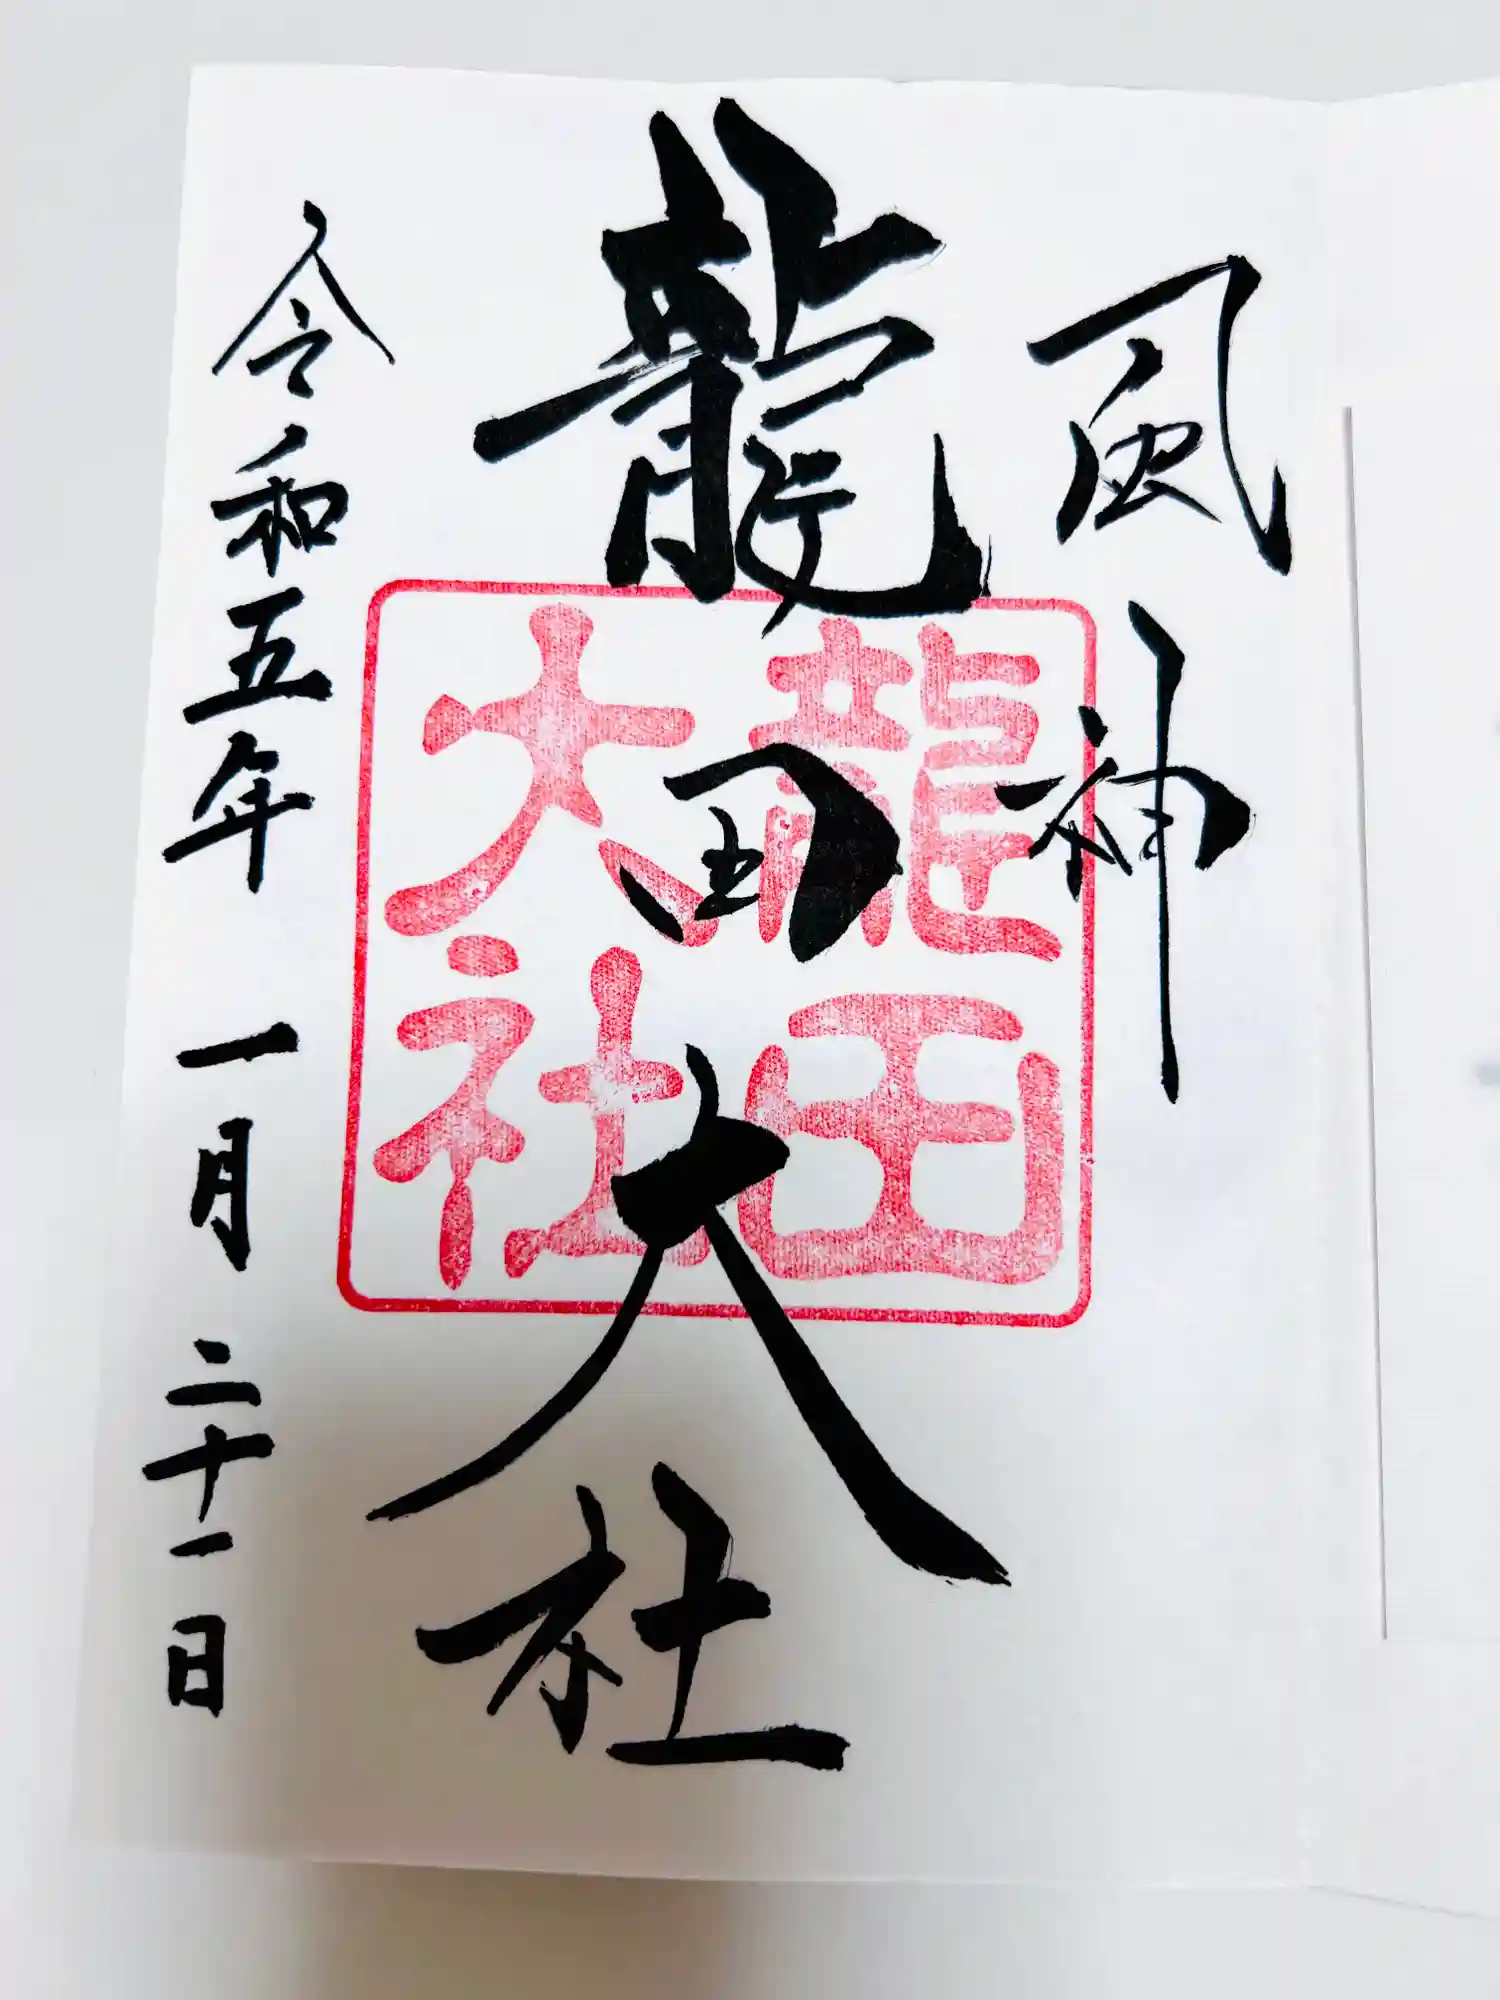 風神
龍田大社
龍田大社
令和五年 一月 二十一日